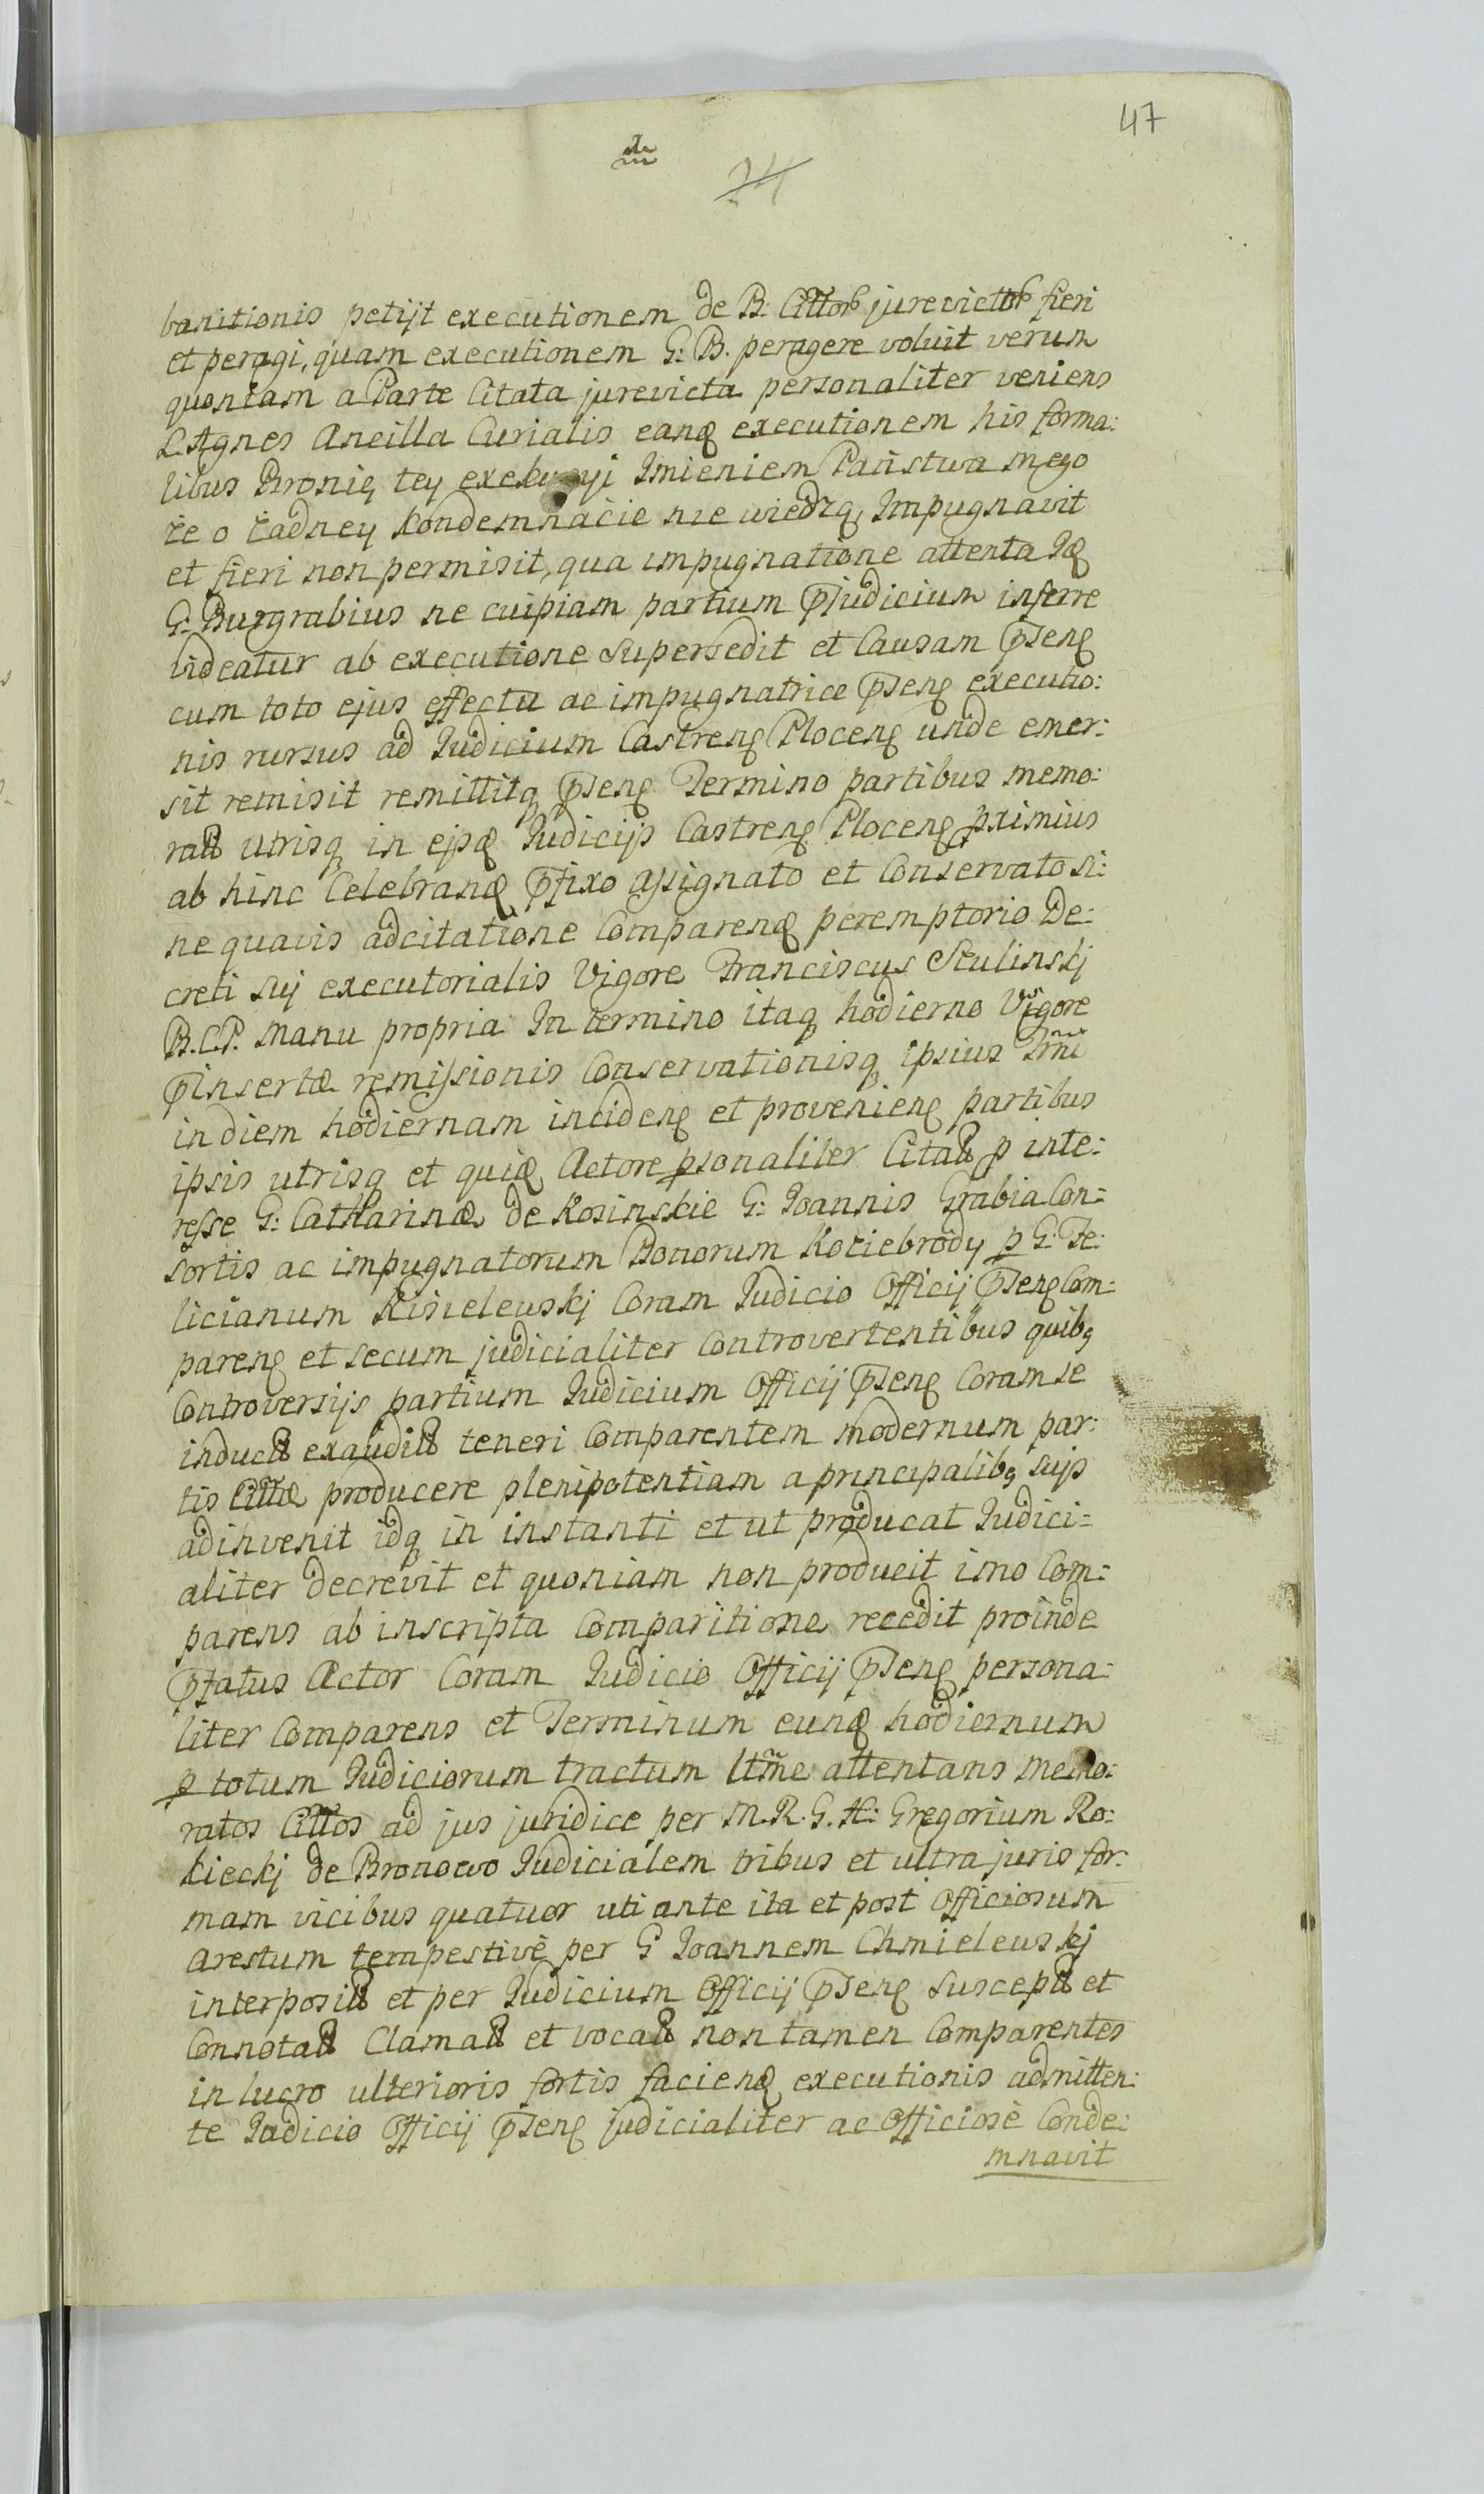 47
24
banitionis petijt executionem de B: Cittor jurevictor fieri
et peragi, quam executionem G: B. peragere voluit verum
quoniam a Parte Citata jurevicta personaliter veniens
L. Agnes Ancilla Curialis eanq executionem his forma:
libus Bronię tey exekucyi Jmieniem Państwa mego
że o żadney kondemnacie nie wiedzą, Jmpugnavit
et fieri non permisit, qua impugnatione attenta Jd
G: Burgrabius ne cuipiam partium pjudicium inferre
videatur ab executione supersedit et Causam pseng
cum toto ejus effectu ac impugnatrice pseng executio:
nis rursus ad Judicium Castreng Ploceng unde emer:
sit remisit remittitq pseng Termino partibus memo:
ratt utrisq in ejsd Judicijs Castreng Ploceng pximius
ab hinc Celebrand pfixo assignato et Conservato si:
ne quavis adcitatione Comparend peremptorio De:
creti suj executorialis Vigore Franciscus Szulinskj
B.C.P. Manu propria In termino itaq hodierno Vigore
pinsertæ remissionis Conservationisq ipsius Trni
in diem hodiernam incideng et provenieng partibus
ipsis utrisq et quid Actore psonaliter Citatt p inte:
resse G: Catharinæ de Kosinskie G: Joannis Grabia Con:
sortis ac impugnatorum Bonorum Kociebrody p G: Fe:
licianum Kisielewskj Coram Judicio Officij pseng Com:
pareng et secum judicialiter Controvertentibus quibq
Controversijs partium Judicium Officij pseng Coram se
inductt exauditt teneri Comparentem modernum par:
tis Cittæ producere plenipotentiam a principalibq sujs
adinvenit idq in instanti et ut producat Judici:
aliter decrevit et quoniam non producit imo Com:
parens ab inscripta Comparitione recedit proinde
pfatus Actor Coram Judicio Officij pseng persona:
liter Comparens et Terminum eund hodiernum
p totum Judiciorum tractum ltme attentans memo:
ratos Cittos ad jus juridice per M.R.G.H: Gregorium Ro:
kieckj de Bronowo Judicialem tribus et ultra juris for:
mam vicibus quatuor uti ante ita et post Officiosum
arestum tempestivè per G Joannem Chmielewskj
interpositt et per Judicium Officij pseng susceptt et
Connotatt Clamatt et vocatt non tamen Comparentes
in lucro ulterioris fortis faciend executionis admitten:
te Judicio Officij pseng judicialiter ac Officiosè Conde:
mnavit